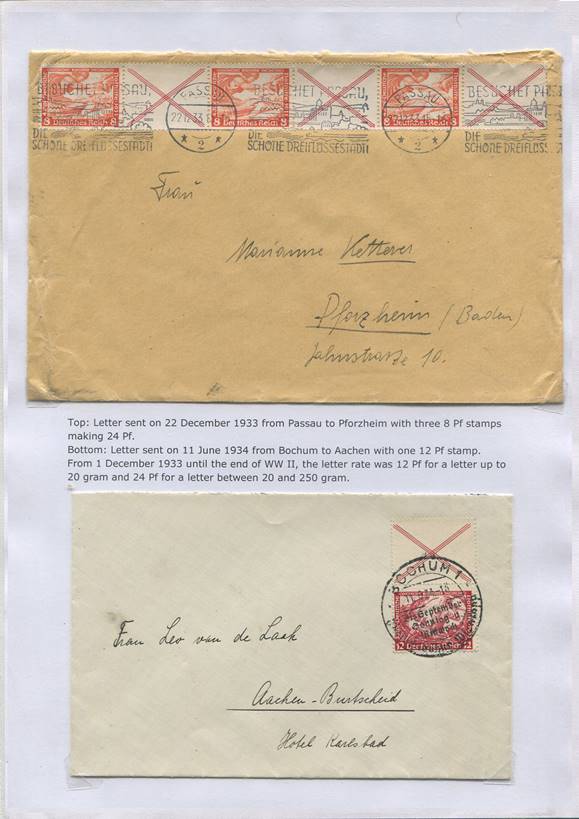 BESUCHET PASSAU, PASSAU BESUCHET PASSAU, PASSAU BESUCHET PASS
8 Deutsches Reich 8 22.12.33 8 Deutsches Reich 8 22.12.33 8 Deutsches Reich 8
DIE * 2 * DIE * 2 * DIE
SCHÖNE DREIFLÜSSESTADT! SCHÖNE DREIFLÜSSESTADT! SCHÖNE DREIFLÜSS
Frau
Marianne Ketterer
Pforzheim (Baden)
Jahnstrasse 10.
Top: Letter sent on 22 December 1933 from Passau to Pforzheim with three 8 Pf stamps
making 24 Pf.
Bottom: Letter sent on 11 June 1934 from Bochum to Aachen with one 12 Pf stamp.
From 1 December 1933 until the end of WW II, the letter rate was 12 Pf for a letter up to
20 gram and 24 Pf for a letter between 20 and 250 gram.
BOCHUM 1
September
12 Deutsches Reich 12
Frau Leo van de Laak
Aachen-Burtscheid
Hotel Karlsbad